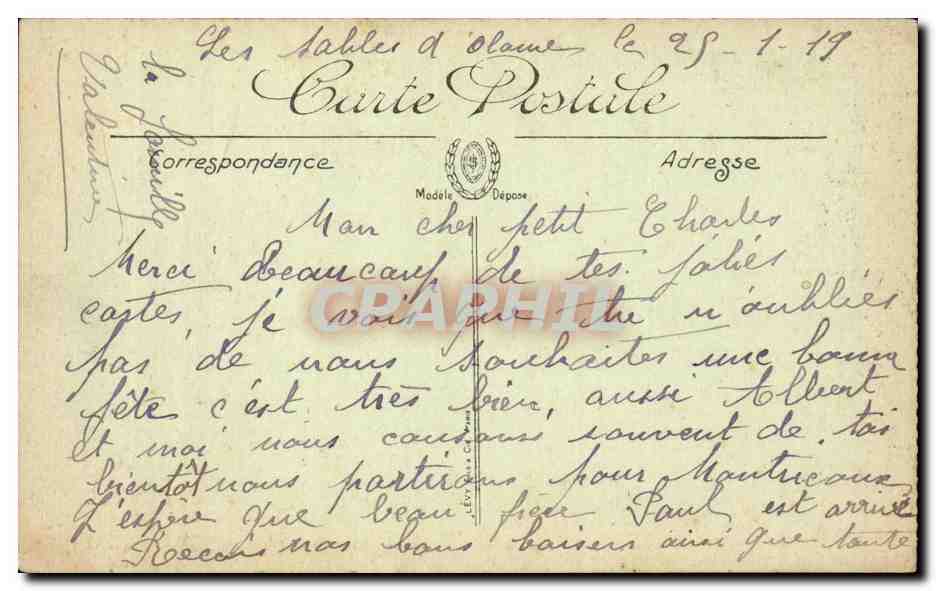 Les Sables d'olonnes le 25-1-19
Carte Postale
Correspondance
Adresse
Modèle Déposé
Mon cher petit Charles
Merci beaucoup de tes jolies
cartes, je vois que tu n'oubliés
pas de nous souhaites une bonne
fête c'est très bien, aussi Albert
et moi nous causons souvent de toi
bientôt nous partirons pour
J'espère que beau frère Paul est arrivé
Recois nos bons baisers ainsi que toute
la famille
Valentine
LÉVY FILS & Cie PARIS
CPAPHIL